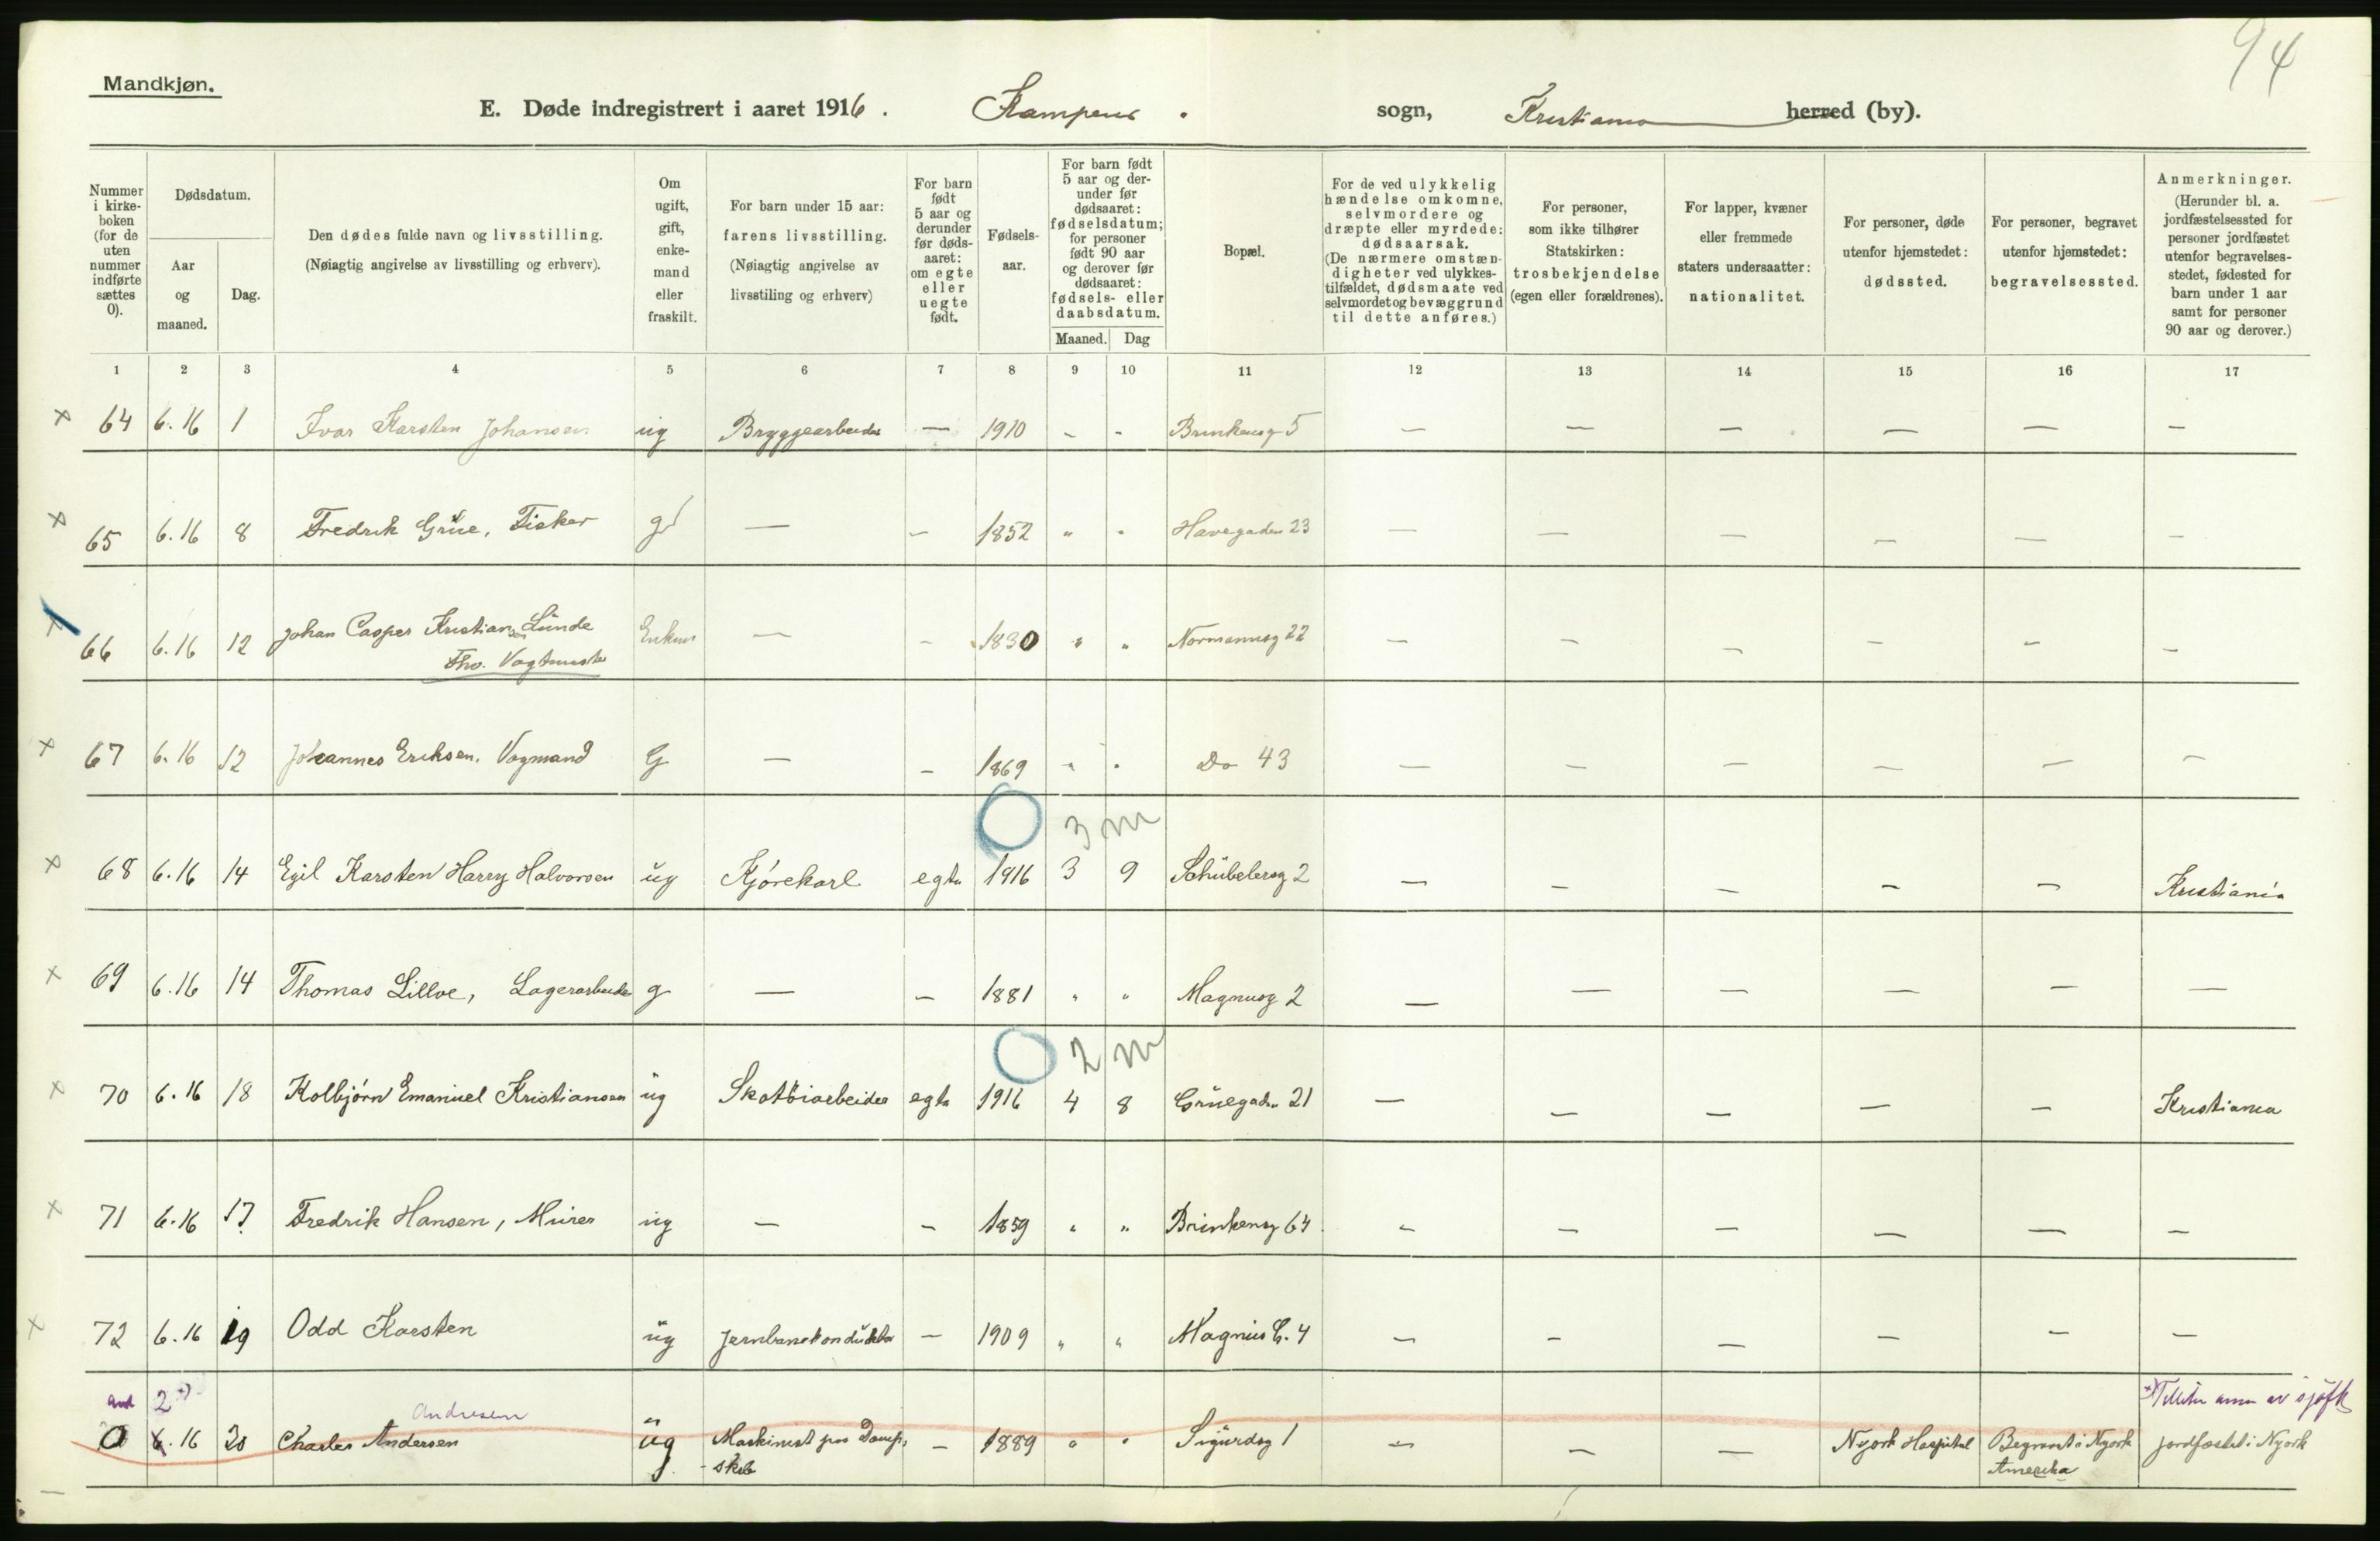 94
Mandkjøn.
E. Døde indregistrert i aaret 1916. Kampens sogn, Kristiania herred (by).
Nummer i kirkeboken (for de uten nummer indførte sættes 0).
Dødsdatum.
Aar og maaned.
Dag.
Den dødes fulde navn og livsstilling. (Nøiagtig angivelse av livsstilling og erhverv).
Om ugift, gift, enkemand eller fraskilt.
For barn under 15 aar: farens livsstilling. (Nøiagtig angivelse av livsstiling og erhverv)
For barn født 5 aar og derunder før dødsaaret: om egte eller uegte født.
Fødselsaar.
For barn født 5 aar og derunder før dødsaaret: fødselsdatum; for personer født 90 aar og derover før dødsaaret: fødsels- eller daabsdatum.
Maaned. Dag
Bopæl.
For de ved ulykkelig hændelse omkomne, selvmordere og dræpte eller myrdede: dødsaarsak. (De nærmere omstændigheter ved ulykkestilfældet, dødsmaate ved selvmordet og bevæggrund til dette anføres.)
For personer, som ikke tilhører Statskirken: trosbekjendelse (egen eller forældrenes).
For lapper, kvæner eller fremmede staters undersaatter: nationalitet.
For personer, døde utenfor hjemstedet: dødssted.
For personer, begravet utenfor hjemstedet: begravelsessted.
Anmerkninger. (Herunder bl. a. jordfæstelsessted for personer jordfæstet utenfor begravelsesstedet, fødested for barn under 1 aar samt for personer 90 aar og derover.)
1 2 3 4 5 6 7 8 9 10 11 12 13 14 15 16 17
x 64 6.16 1 Ivar Karsten Johansen ug Bryggearbeider — 1910 - - Brinkensg 5 — — — — — —
x 65 6.16 8 Fredrik Grüe, Fisker g — — 1852 " " Havegaden 23 — — — — — —
x 66 6.16 12 Johan Casper Kristiansen Lunde Enkem — — 1830 " " Normannsg 22 — — — — — —
Fhv. Vagtmester
x 67 6.16 12 Johannes Eriksen, Vogmand G — — 1869 " " Do 43 — — — — — —
3 m
x 68 6.16 14 Egil Karsten Harry Halvorsen ug Kjørekarl egte 1916 3 9 Schübelersg 2 — — — — — Kristiania
x 69 6.16 14 Thomas Lilloe, Lagerarbeider g — — 1881 " " Magnusg 2 — — — — — —
2 m
x 70 6.16 18 Kolbjørn Emanuel Kristiansen ug Skotöiarbeider egte 1916 4 8 Grüegaden 21 — — — — — Kristiania
x 71 6.16 17 Fredrik Hansen, Murer ug — — 1859 " " Brinkensg 64 — — — — — —
x 72 6.16 19 Odd Karsten ug Jernbanekonduktør — 1909 " " Magnus G. 4 — — — — — —
2 Andresen
0 6.16 20 Charles Andersen ug Maskinist paa Damp- — 1889 " " Sigurdsg 1 — — — Nyork Hospital Begravet i Nyork jordfæstet i Nyork
skib Amerika